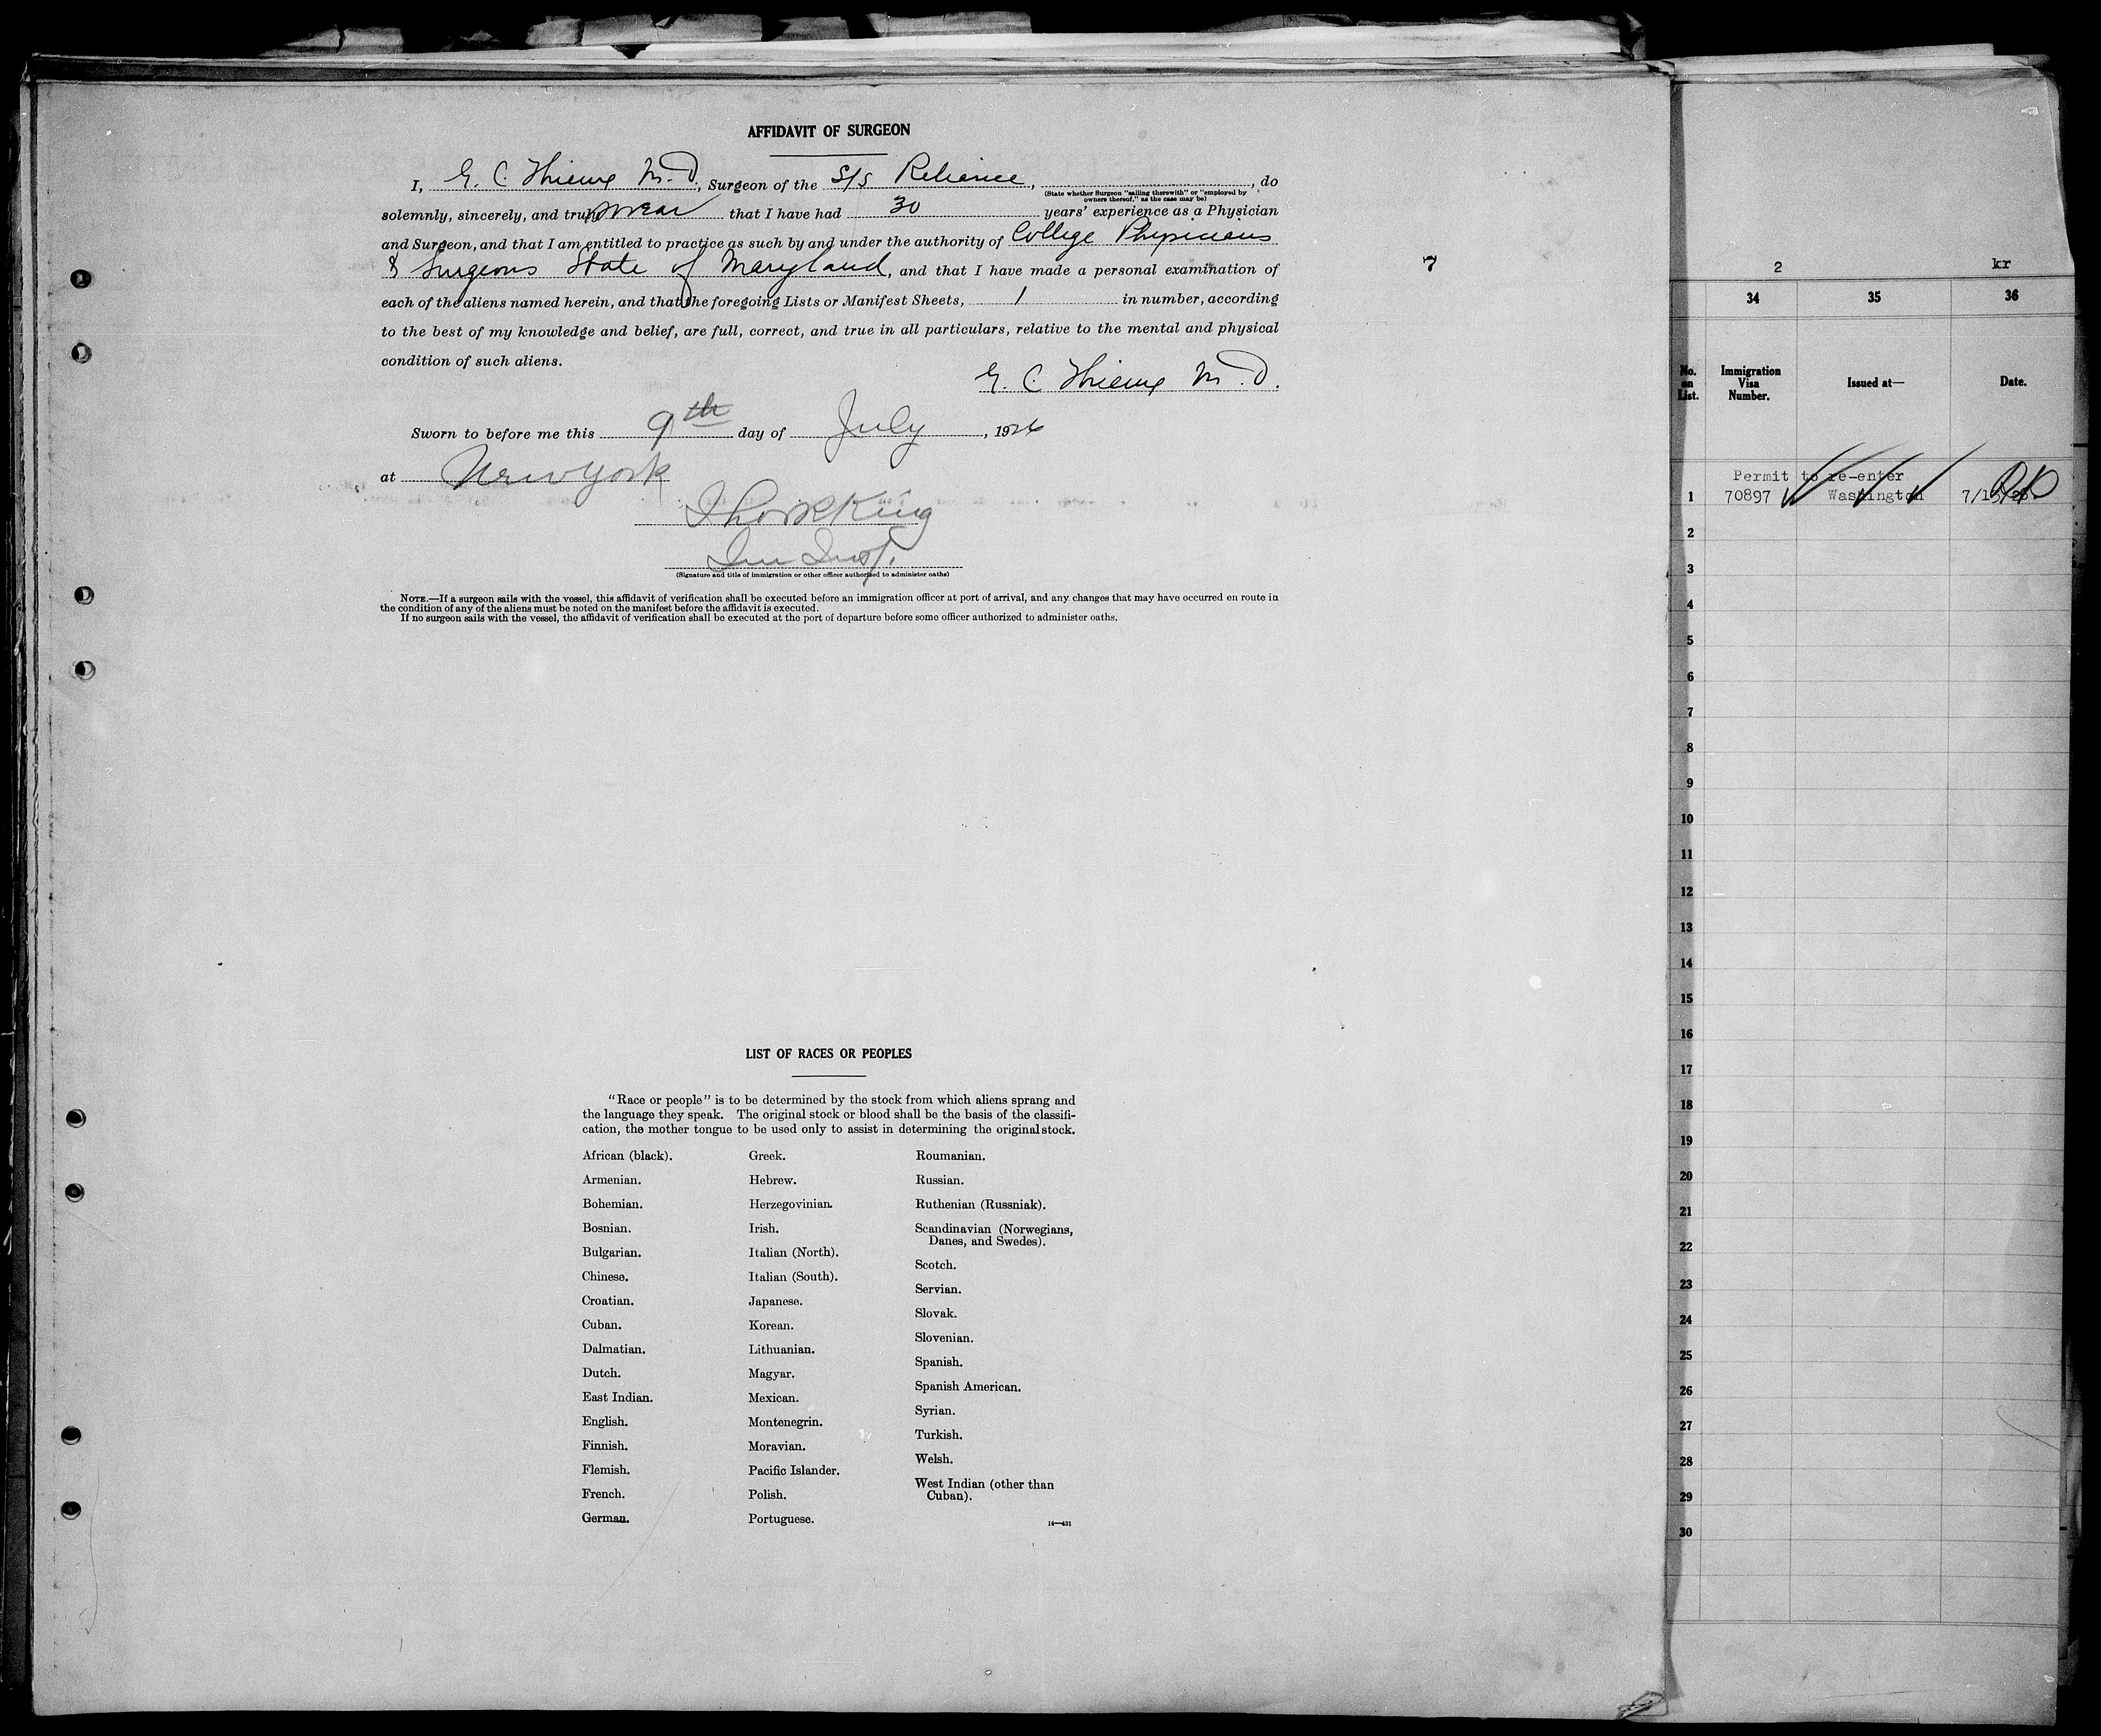 AFFIDAVIT OF SURGEON
I, G. C. Thieme M.D., Surgeon of the S/S Reliance, , do
(State whether Surgeon "sailing therewith" or "employed by
owners thereof," as the case may be)
solemnly, sincerely, and truly swear that I have had 30 years' experience as a Physician
and Surgeon, and that I am entitled to practice as such by and under the authority of College Physicians
& Surgeons State of Maryland, and that I have made a personal examination of
each of the aliens named herein, and that the foregoing Lists or Manifest Sheets, 1 in number, according
to the best of my knowledge and belief, are full, correct, and true in all particulars, relative to the mental and physical
condition of such aliens.
G. C. Thieme M.D.
Sworn to before me this 9th day of July, 1926
at New York
King
Im Insp.
(Signature and title of immigration or other officer authorized to administer oaths)
NOTE.—If a surgeon sails with the vessel, this affidavit of verification shall be executed before an immigration officer at port of arrival, and any changes that may have occurred en route in
the condition of any of the aliens must be noted on the manifest before the affidavit is executed.
If no surgeon sails with the vessel, the affidavit of verification shall be executed at the port of departure before some officer authorized to administer oaths.
7
LIST OF RACES OR PEOPLES
"Race or people" is to be determined by the stock from which aliens sprang and
the language they speak. The original stock or blood shall be the basis of the classifi-
cation, the mother tongue to be used only to assist in determining the original stock.
African (black).
Armenian.
Bohemian.
Bosnian.
Bulgarian.
Chinese.
Croatian.
Cuban.
Dalmatian.
Dutch.
East Indian.
English.
Finnish.
Flemish.
French.
German.
Greek.
Hebrew.
Herzegovinian.
Irish.
Italian (North).
Italian (South).
Japanese.
Korean.
Lithuanian.
Magyar.
Mexican.
Montenegrin.
Moravian.
Pacific Islander.
Polish.
Portuguese.
Roumanian.
Russian.
Ruthenian (Russniak).
Scandinavian (Norwegians,
Danes, and Swedes).
Scotch.
Servian.
Slovak.
Slovenian.
Spanish.
Spanish American.
Syrian.
Turkish.
Welsh.
West Indian (other than
Cuban).
14—431
2 kr
34 35 36
No. on List. Immigration Visa Number. Issued at— Date.
Permit to re-enter
1 70897 Washington
2
3
4
5
6
7
8
9
10
11
12
13
14
15
16
17
18
19
20
21
22
23
24
25
26
27
28
29
30